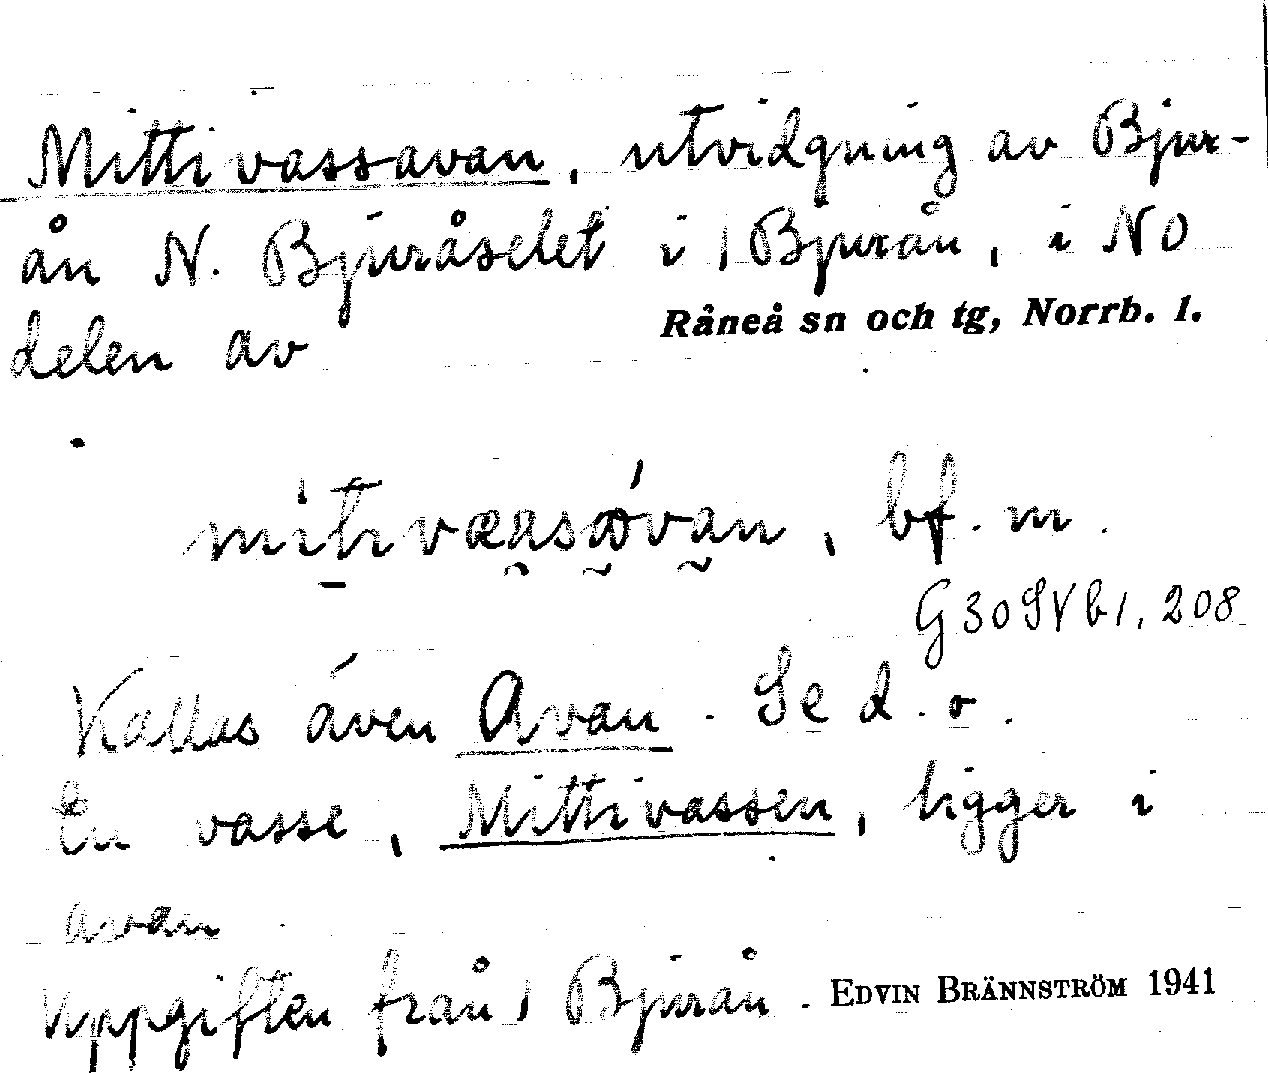 Mittivassavan, utvidgning av Bjur-
ån N. Bjuråselet i / Bjurån, i NO
delen av Råneå sn och tg, Norrb. l.
bf. m.
G30SVb1, 208
Kallas även Avan. Se d. o.
En vasse, Mittivassen, ligger i
avan
Uppgiften från / Bjurån. EDVIN BRÄNNSTRÖM 1941